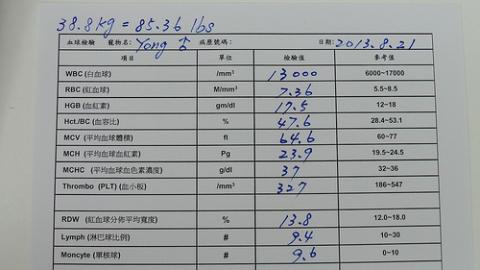 38.8kg = 85.36 lbs
血球檢驗 寵物名: Yong ♂ 病歷號碼: 日期: 2013.8.21
項目 單位 檢驗值 參考值
WBC (白血球) /mm³ 13000 6000~17000
RBC (紅血球) M/mm³ 7.36 5.5~8.5
HGB (血紅素) gm/dl 17.5 12~18
Hct./BC (血容比) % 47.6 28.4~53.1
MCV (平均血球體積) fl 64.6 60~77
MCH (平均血球血紅素) Pg 23.9 19.5~24.5
MCHC (平均血球血色素濃度) g/dl 37 32~36
Thrombo (PLT) (血小板) /mm³ 327 186~547
RDW (紅血球分佈平均寬度) % 13.8 12.0~18.0
Lymph (淋巴球比例) # 9.4 10~30
Moncyte (單核球) # 9.6 0~10